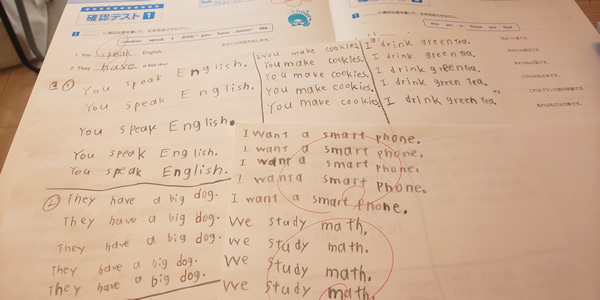 確認テスト 1
1 You speak English.
2 They have a big dog.
① You speak English.
You speak English.
You speak English.
You speak English.
You speak English.
② They have a big dog.
They have a big dog.
They have a big dog.
They have a big dog.
They have a big dog.
You make cookies.
You make cookies.
You make cookies.
You make cookies.
You make cookies.
I drink green tea.
I drink green tea.
I drink green tea.
I drink green tea.
I drink green tea.
I want a smart phone.
I want a smart phone.
I want a smart phone.
I want a smart phone.
I want a smart phone.
We study math.
We study math.
We study math.
We study math.